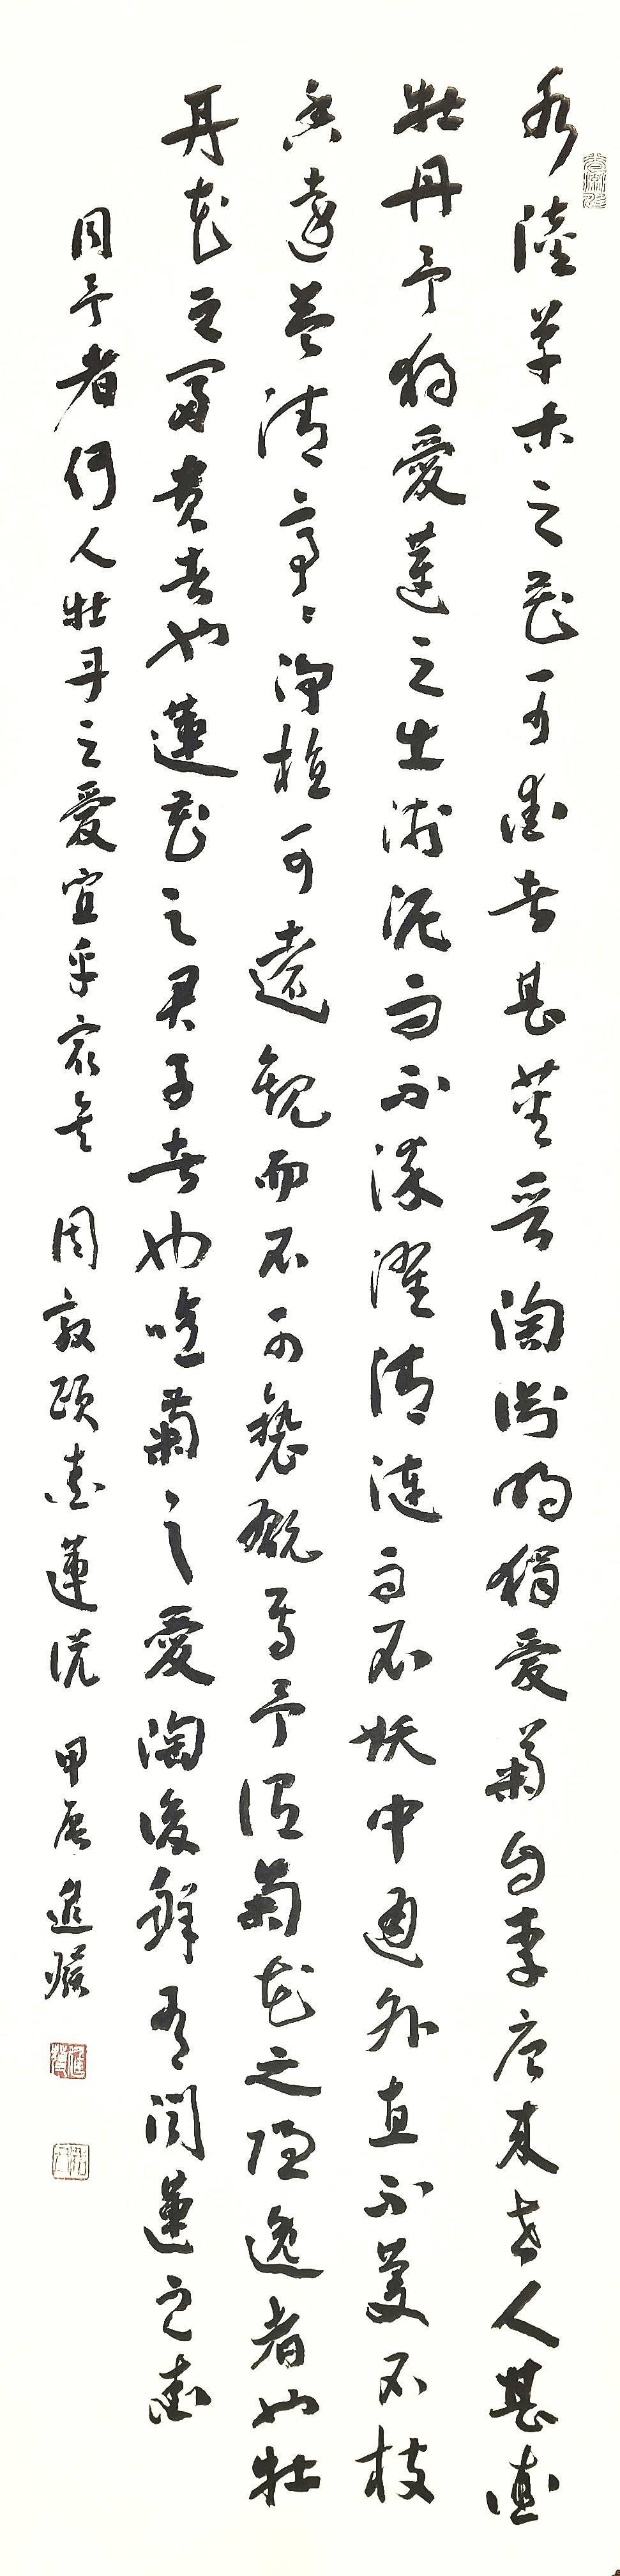 水陸草木之花可愛者甚蕃晉陶淵明獨愛菊自李唐來世人甚愛
牡丹予獨愛蓮之出淤泥而不染濯清漣而不妖中通外直不蔓不枝
香遠益清亭亭淨植可遠觀而不可褻翫焉予謂菊花之隱逸者也牡
丹花之富貴者也蓮花之君子者也噫菊之愛陶後鮮有聞蓮之愛
同予者何人牡丹之愛宜乎眾矣 周敦頤愛蓮說 甲辰進